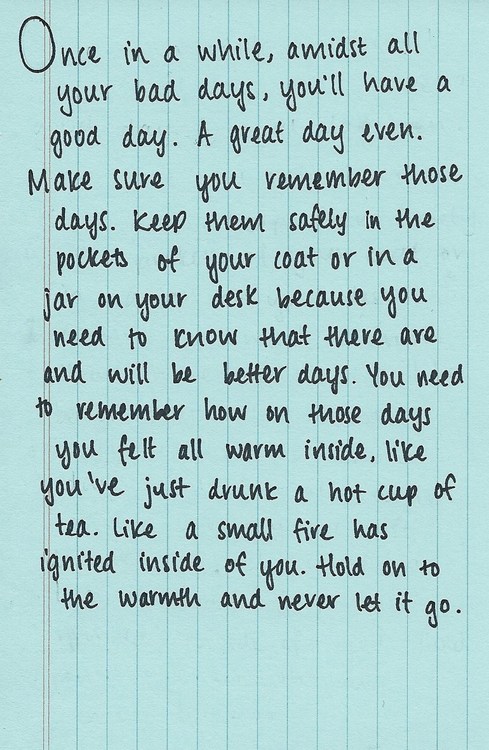 Once in a while, amidst all
your bad days, you'll have a
good day. A great day even.
Make sure you remember those
days. Keep them safely in the
pockets of your coat or in a
jar on your desk because you
need to know that there are
and will be better days. You need
to remember how on those days
you felt all warm inside, like
you've just drunk a hot cup of
tea. Like a small fire has
ignited inside of you. Hold on to
the warmth and never let it go.